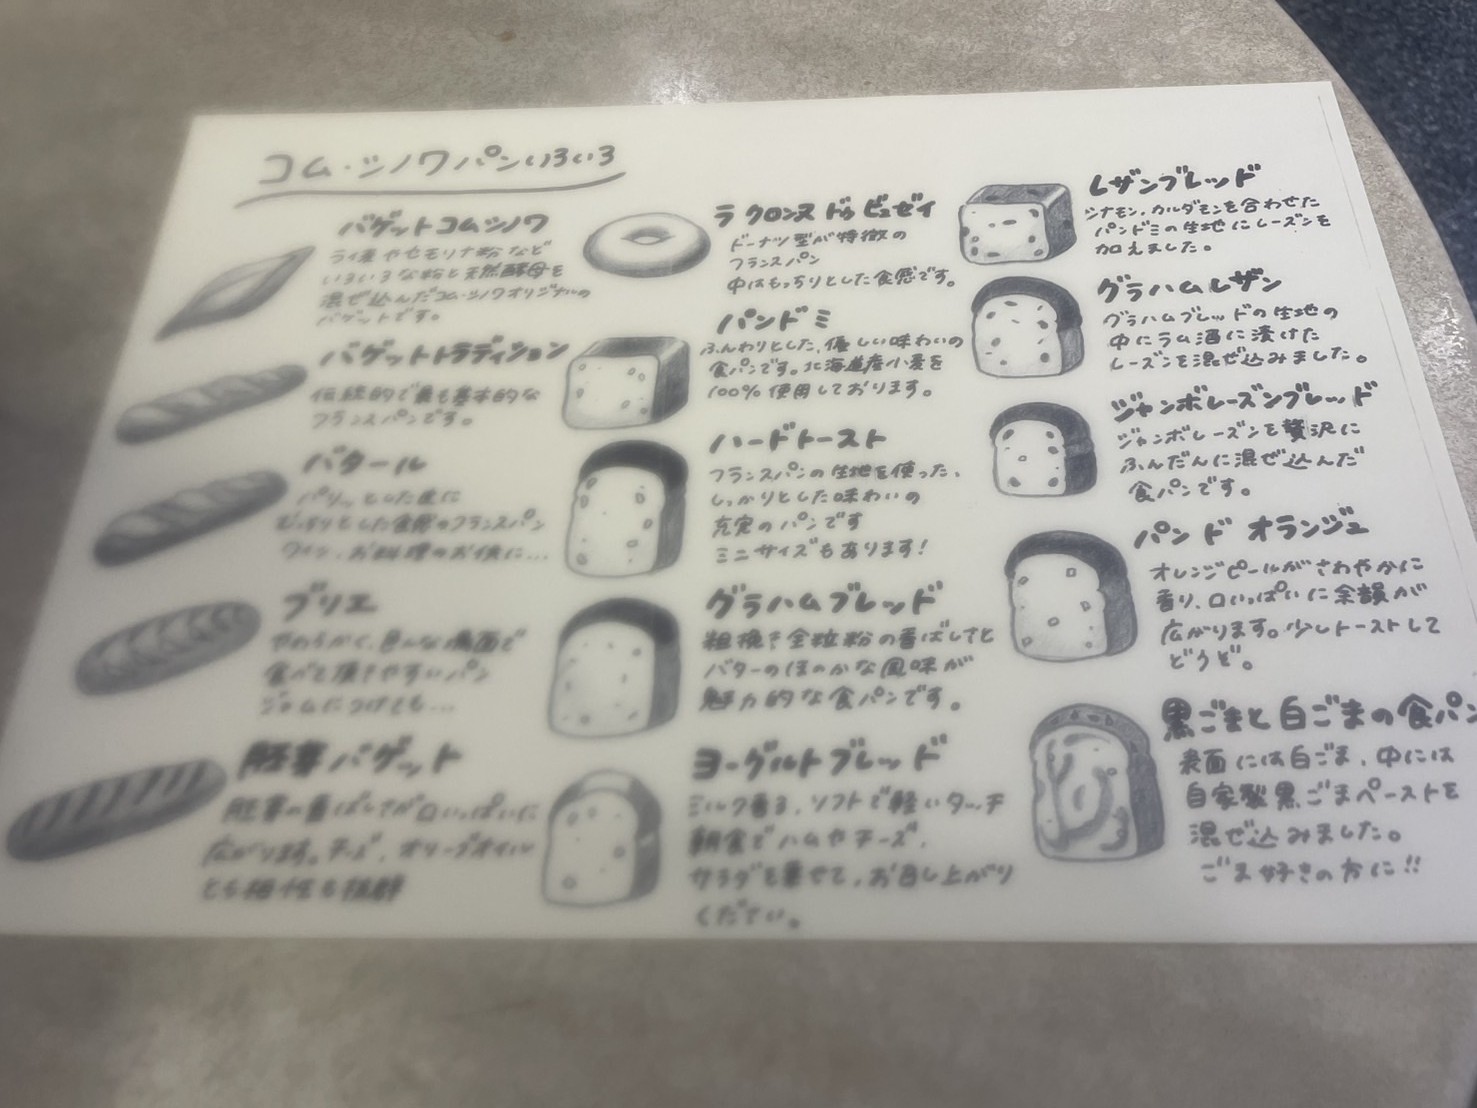 コム・シノワパンいろいろ
バゲットコムシノワ
ライ麦やセモリナ粉など
いろいろな粉と天然酵母を
混ぜ込んだコム・シノワオリジナルの
バゲットです。
バゲットトラディション
伝統的で最も基本的な
フランスパンです。
バタール
パリッとした皮に
もっちりとした食感のフランスパン
ワイン、お料理のお供に...
ブリエ
やわらかく、色んな場面で
食べて頂きやすいパン
ジャムにつけても...
胚芽バゲット
胚芽の香ばしさが口いっぱいに
広がります。チーズ、オリーブオイル
とも相性も抜群
ラ クロンヌ ドゥ ビュゼイ
ドーナツ型が特徴の
フランスパン
中はもっちりとした食感です。
パンドミ
ふんわりとした、優しい味わいの
食パンです。北海道産小麦を
100%使用しております。
ハードトースト
フランスパンの生地を使った、
しっかりとした味わいの
充実のパンです
ミニサイズもあります!
グラハムブレッド
粗挽き全粒粉の香ばしさと
バターのほのかな風味が
魅力的な食パンです。
ヨーグルトブレッド
ミルク香る、ソフトで軽いタッチ
朝食でハムやチーズ、
サラダを乗せて、お召し上がり
ください。
レザンブレッド
シナモン、カルダモンを合わせた
パンドミの生地にレーズンを
加えました。
グラハムレザン
グラハムブレッドの生地の
中にラム酒に漬けた
レーズンを混ぜ込みました。
ジャンボレーズンブレッド
ジャンボレーズンを贅沢に
ふんだんに混ぜ込んだ
食パンです。
パン ド オランジュ
オレンジピールがさわやかに
香り、口いっぱいに余韻が
広がります。少しトーストして
どうぞ。
黒ごまと白ごまの食パン
表面には白ごま、中には
自家製黒ごまペーストを
混ぜ込みました。
ごま好きの方に!!